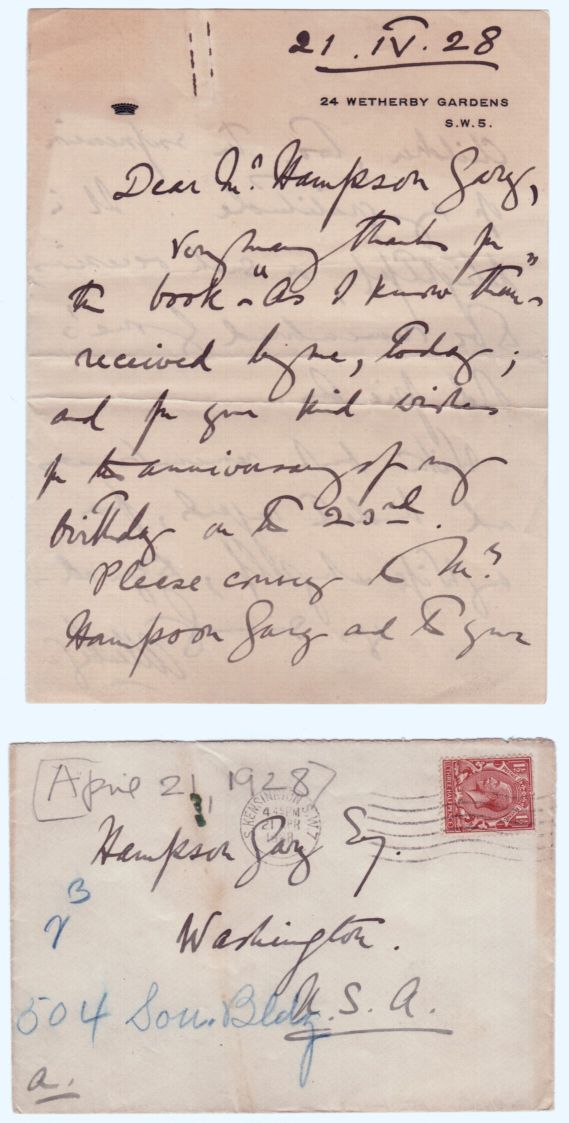 21.IV.28
24 WETHERBY GARDENS
S.W.5.
Dear Mr. Hampson Gary,
Very many thanks for
the book - "As I know them" -
received by me, today;
and for your kind wishes
for the anniversary of my
birthday on the 23rd.
Please convey to Mrs.
Hampson Gary and to your
[April 21, 1928]
S. KENSINGTON. S.W.7
4.45PM
21 APR
1928
Hampson Gary Esq.
Washington.
U.S.A.
504 Sou. Bldg
a.